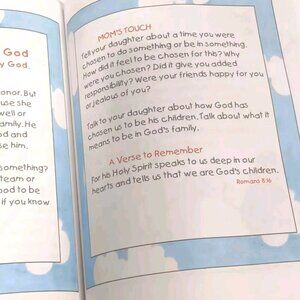 God
y God.
onor. But
use she
well or
amily. He
od and
se him.
something?
team or
ood to be
if you know
MOM'S TOUCH
Tell your daughter about a time you were
chosen to do something or be in something.
How did it feel to be chosen for this? Why
were you chosen? Did it give you added
responsibility? Were your friends happy for you
or jealous of you?
Talk to your daughter about how God has
chosen us to be his children. Talk about what it
means to be in God's family.
A Verse to Remember
For his Holy Spirit speaks to us deep in our
hearts and tells us that we are God's children.
Romans 8:16